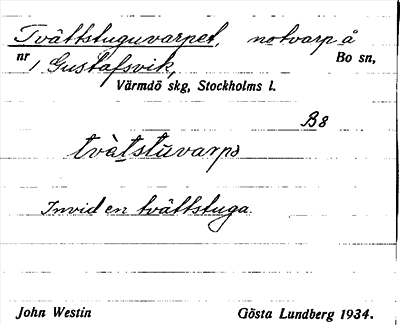 Tvättstuguvarpet, notvarp å
nr 1 Gustafsvik, Bo sn,
Värmdö skg, Stockholms l.
B8
tvàtstùvarpə
Invid en tvättstuga.
John Westin Gösta Lundberg 1934.